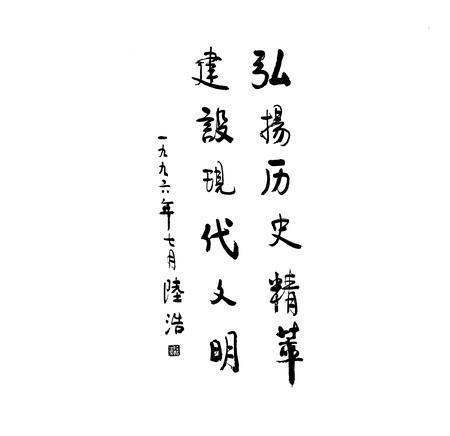 弘揚历史精華
建設現代文明
一九九六年七月 陸浩